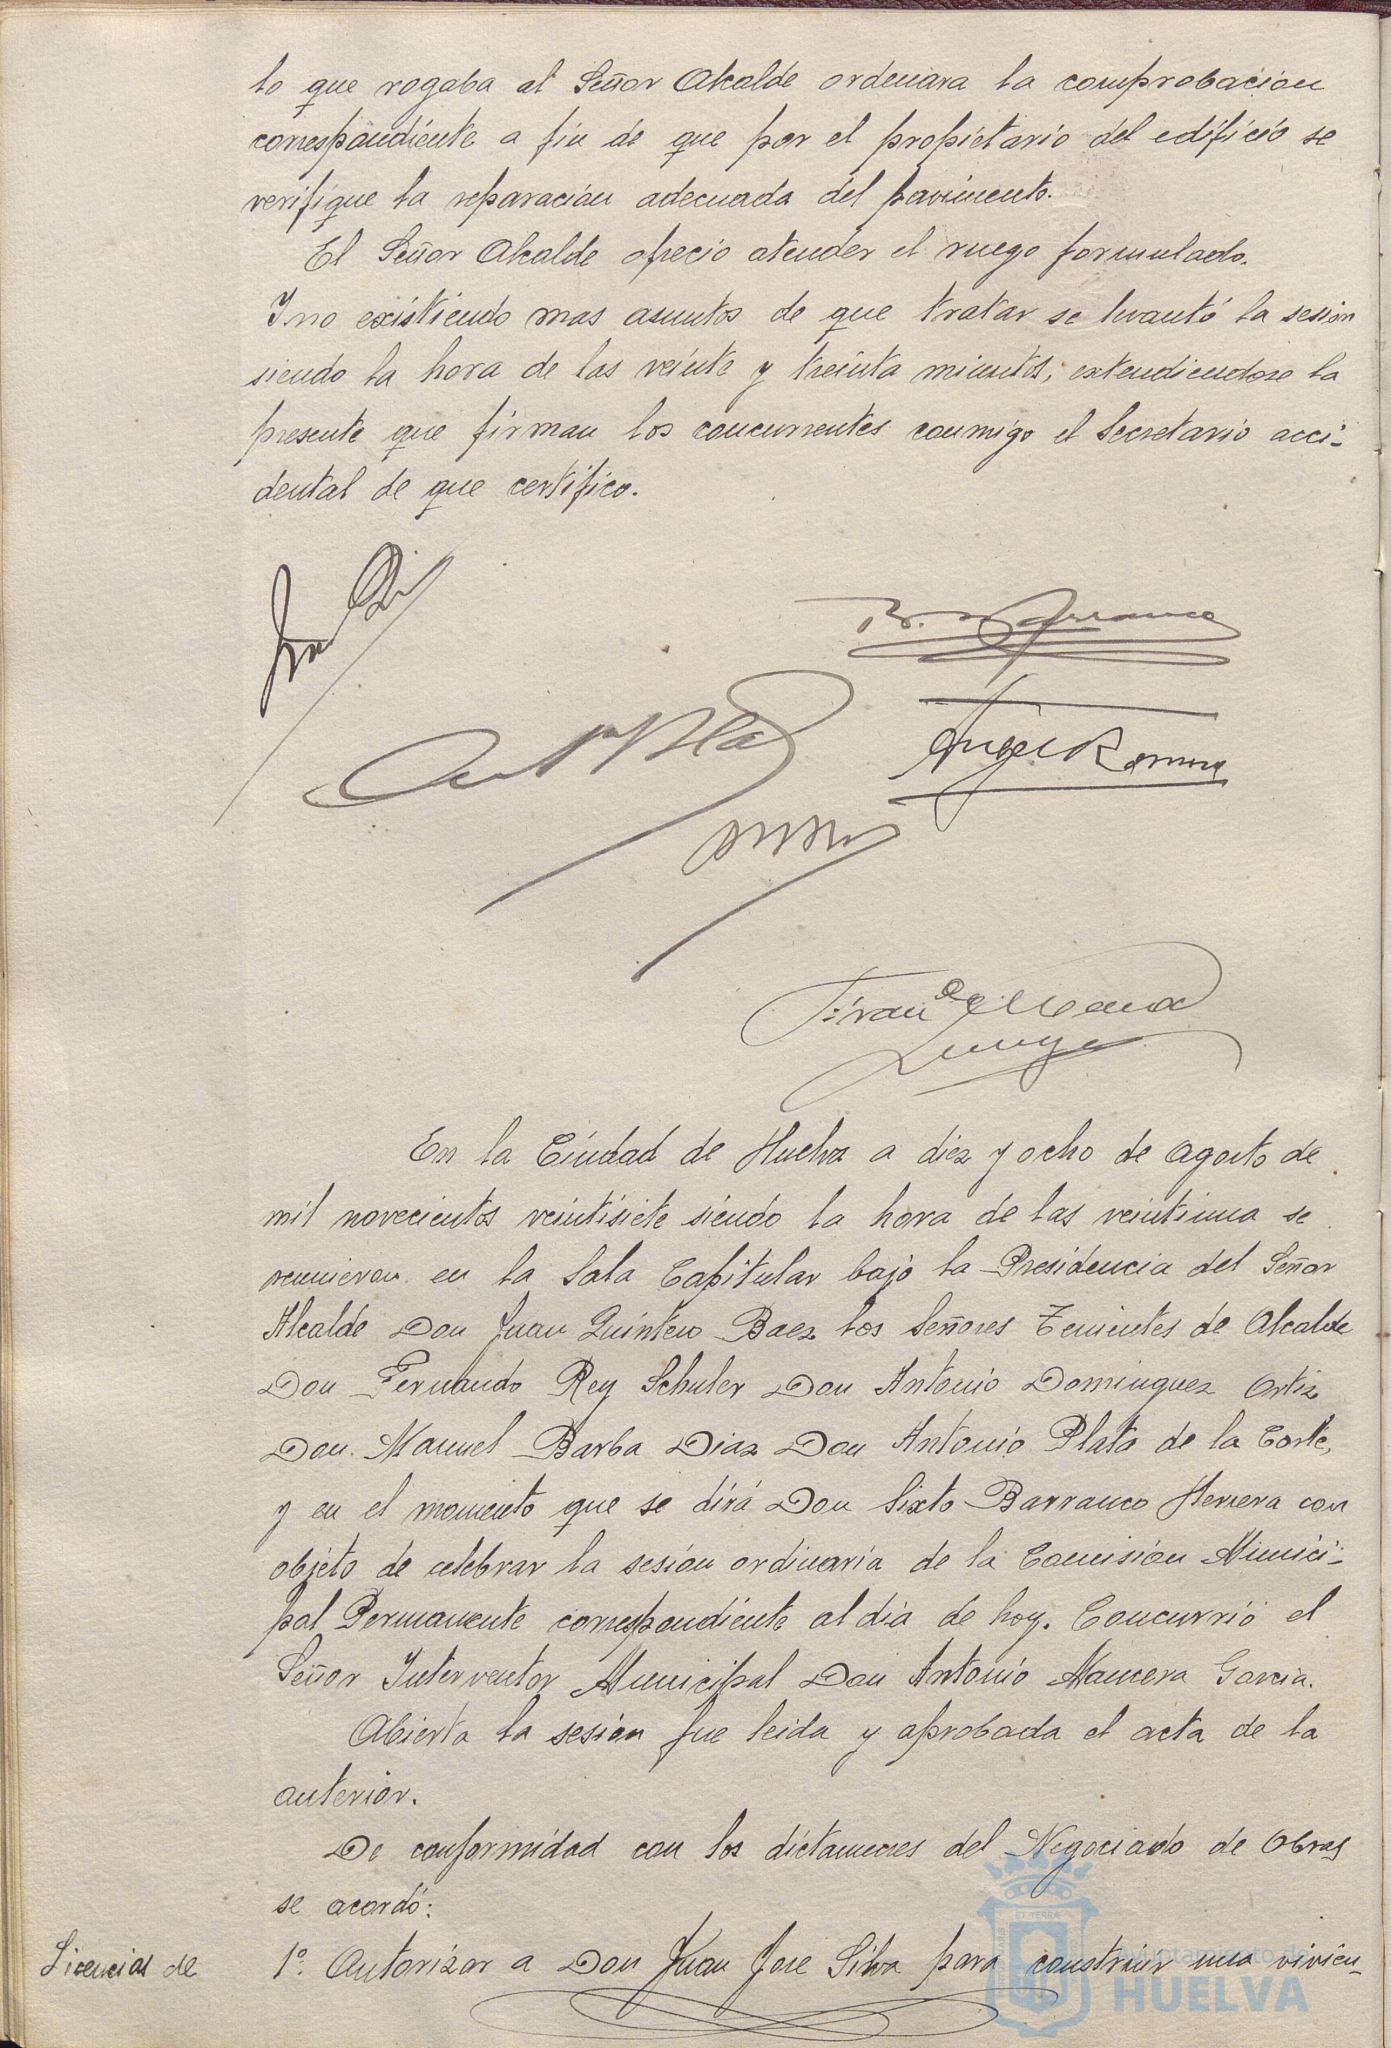 lo que rogaba al Señor Alcalde ordenara la comprobacion
correspondiente a fin de que por el propietario del edificio se
verifique la reparación adecuada del pavimento.
El Señor Alcalde ofrecio atender el ruego formulado.
Y no existiendo mas asuntos de que tratar se levantó la sesion
siendo la hora de las veinte y treinta minutos, extendiendose la
presente que firman los concurrentes conmigo el Secretario acci-
dental de que certifico.
Angel Romero
En la Ciudad de Huelva a diez y ocho de Agosto de
mil novecientos veintisiete siendo la hora de las veintiuna se
reunieron en la Sala Capitular bajo la Presidencia del Señor
Alcalde Don Juan Quintero Baez los Señores Tenientes de Alcalde
Don Fernando Rey Schuler Don Antonio Dominguez Ortiz
Don Manuel Barba Diaz Don Antonio Plata de la Corte,
y en el momento que se dirá Don Sixto Barranco Herrera con
objeto de celebrar la sesion ordinaria de la Comision Munici-
pal Permanente correspondiente al dia de hoy. Concurrió el
Señor Interventor Municipal Don Antonio Mancera Garcia.
Abierta la sesion fue leida y aprobada el acta de la
anterior.
De conformidad con los dictamenes del Negociado de Obras
se acordó:
Licencias de
1º. Autorizar a Don Juan Jose Silva para construir una vivien-
Ayuntamiento de
HUELVA